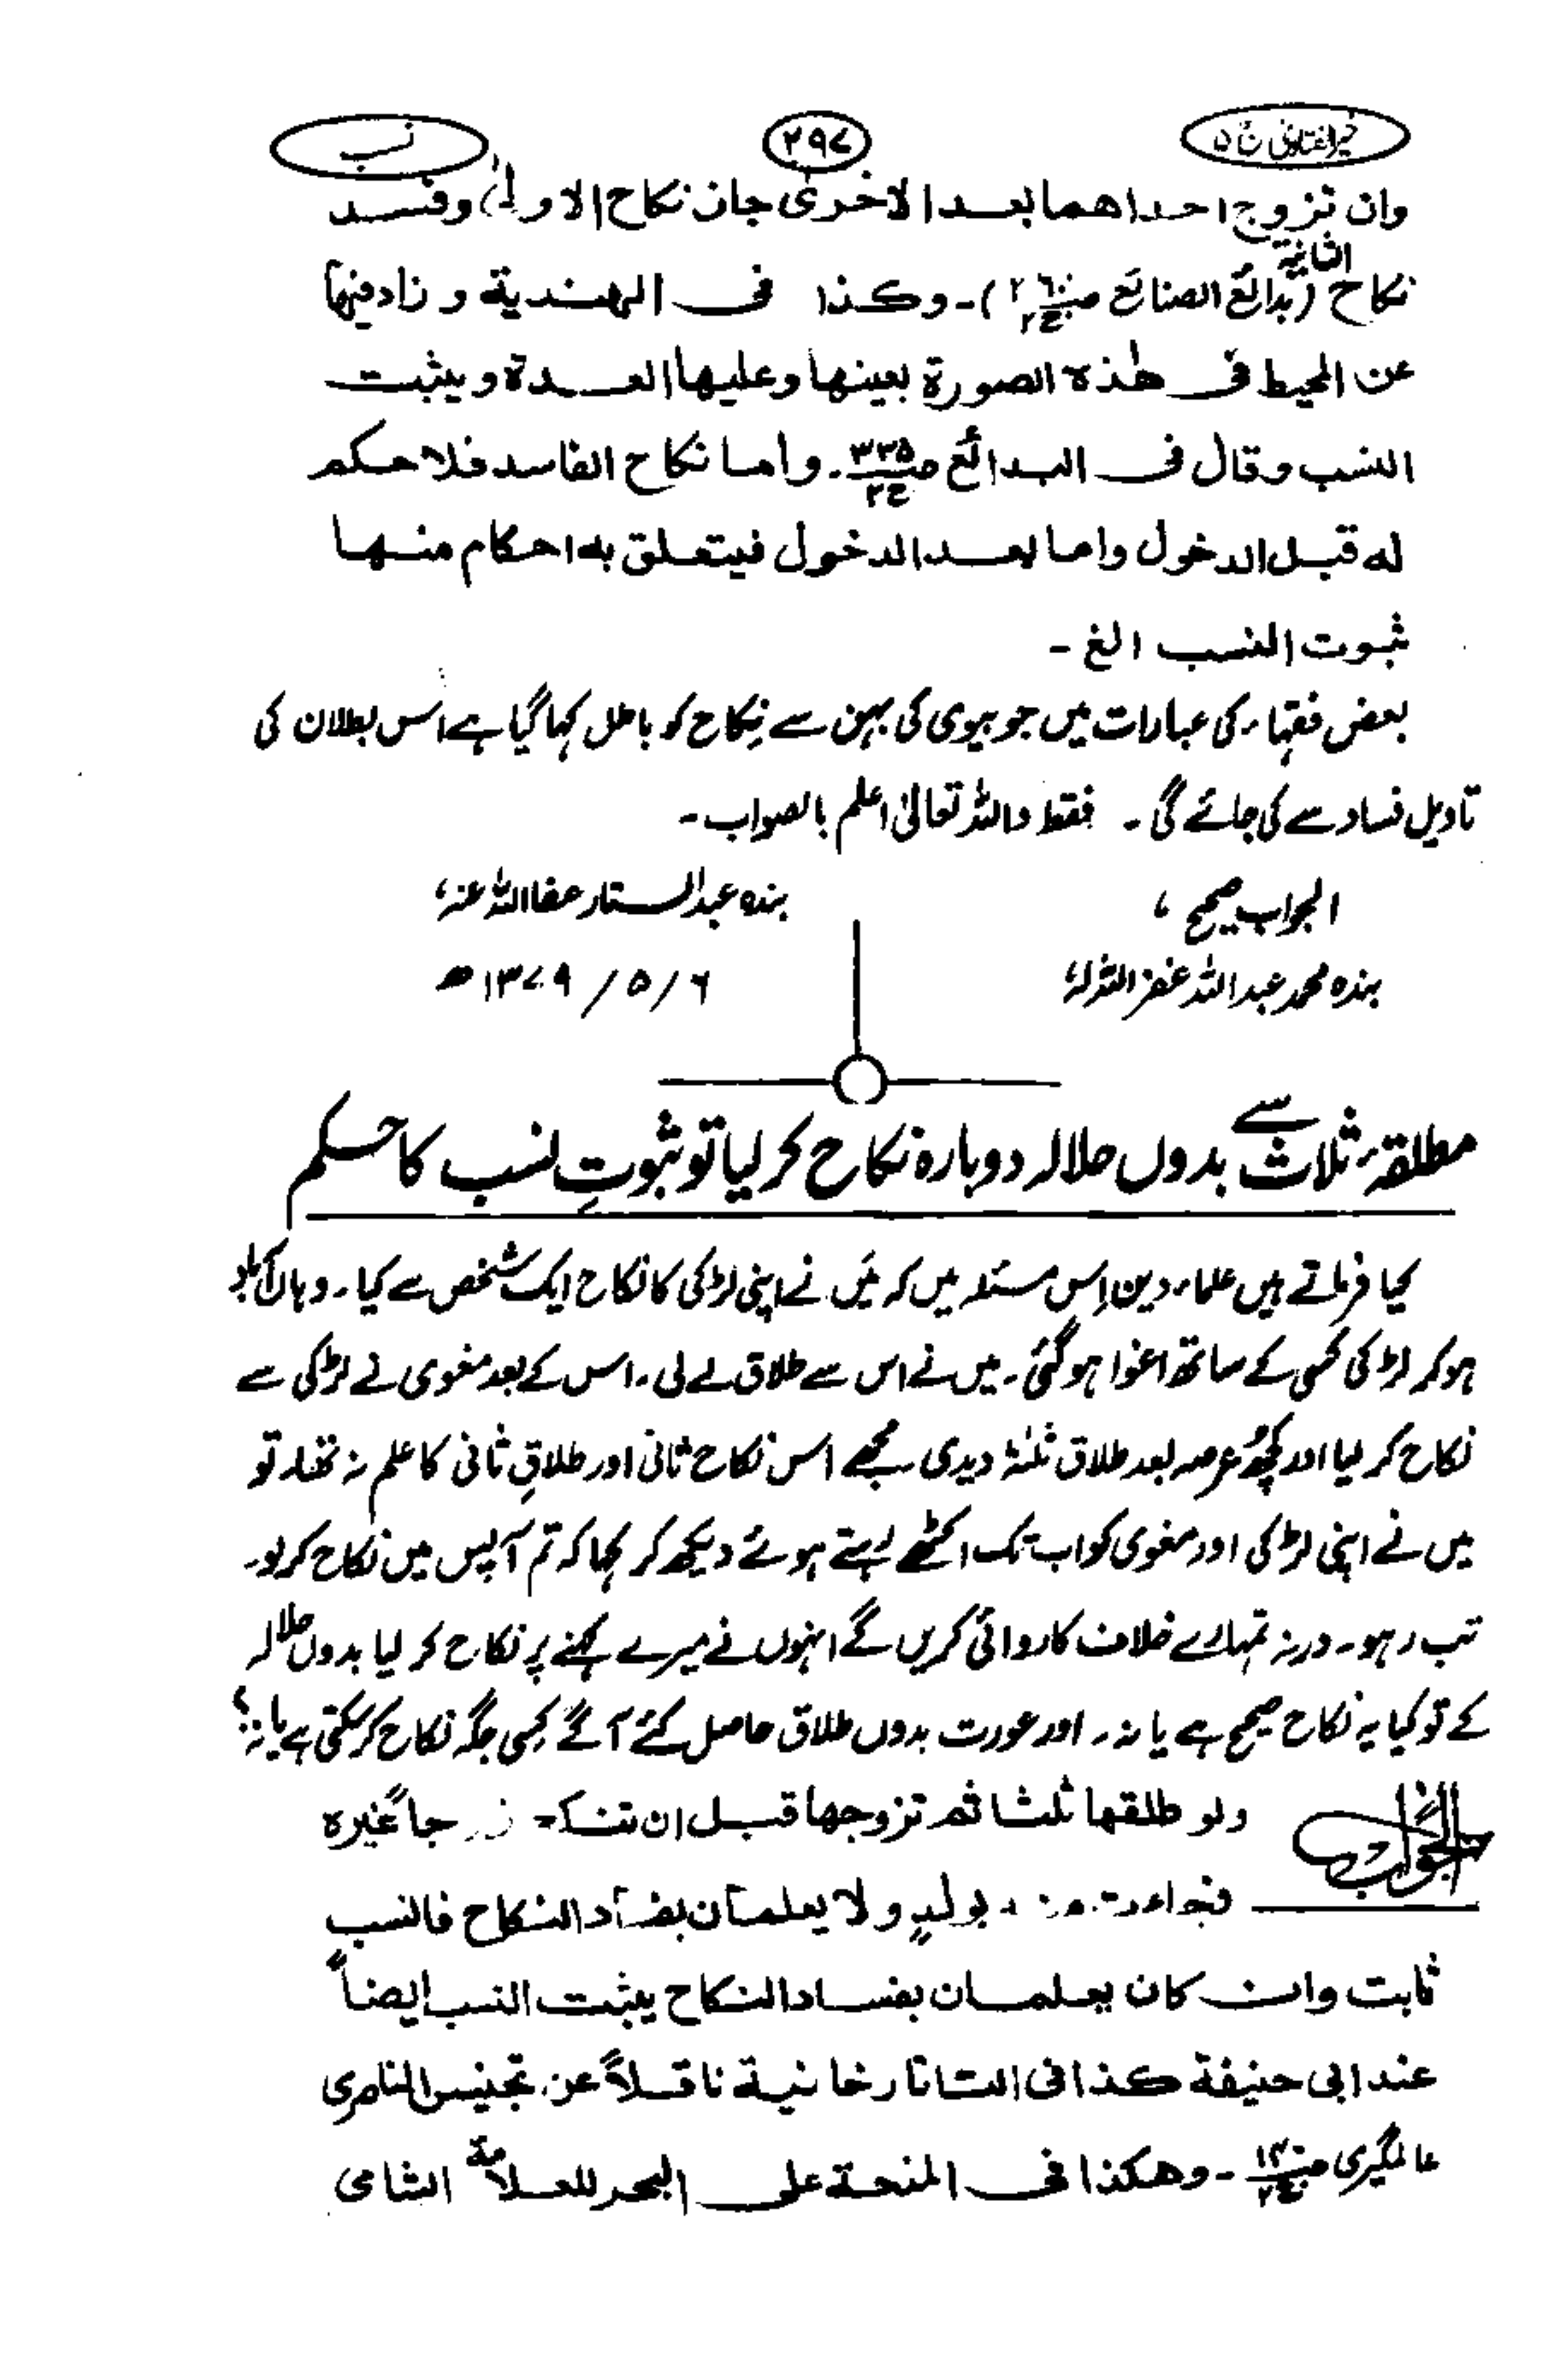 خیر الفتاوی ج ۵ ۲۹۷ نسب
وان تزوج احداهما بعد الاخرىٰ جاز نكاح الاولىٰ وفسد
نكاح الثانية (بدائع الصنائع ج۲) ـ وكذا فى الهندية وزاد فيها
عن المحيط فى هٰذه الصورة بعينها وعليها العدة ويثبت
النسب وقال فى البدائع ص۳۳۵ ج۲ ـ واما نكاح الفاسد فلا حكم
له قبل الدخول واما بعد الدخول فيتعلق به احكام منها
ثبوت النسب الخ ـ
بعض فقہاء کی عبارات میں جو بیوی کی بہن سے نِکاح کو باطل کہا گیا ہے اُس بطلان کی
تاویل فساد سے کی جائے گی ۔ فقط واللہ تعالیٰ اعلم بالصواب ۔
الجواب صحیح ، بندہ عبدالستار عفا اللہ عنہ،
بندہ محمد عبداللہ غفر اللہ لہٗ ۶ / ۵ / ۱۳۷۹ ھ
مطلقہء ثلاث سے بدوں حلالہ دوبارہ نکاح کر لیا تو ثبوتِ نسب کا حکم
کیا فرماتے ہیں علماء دین اِس مسئلہ میں کہ میَں نے اپنی لڑکی کا نکاح ایک شخص سے کیا ۔ وہاں آباد
ہو کر لڑکی کسی کے ساتھ اغوا ہو گئی ۔ میں نے اس سے طلاق لے لی ۔ اس کے بعد مغوی نے لڑکی سے
نکاح کر لیا اور کچھ عرصہ بعد طلاق ثلٰثہ دیدی ۔ مجھے اس نکاح ثانی اور طلاقِ ثانی کا علم نہ تھا ۔ تو
میں نے اپنی لڑکی اور مغوی کو اب تک اکٹھے رہتے ہوئے دیکھ کر کہا کہ تم آپس میں نکاح کر لو ۔
تب رہو ۔ ورنہ تمہارے خلاف کاروائی کریں گے انہوں نے میرے کہنے پر نکاح کر لیا بدوں حلالہ
کے تو کیا یہ نکاح صحیح ہے یا نہ ۔ اور عورت بدوں طلاق حاصل کئے آگے کسی جگہ نکاح کر سکتی ہے یا نہ ؟
الجواب ولو طلقها ثلثا ثم تزوجها قبل ان تنكح زوجاً غيره
فجاءت منه بولدٍ ولا يعلمان بفساد النكاح فالنسب
ثابت وان كان يعلمان بفساد النكاح يثبت النسب ايضاً
عند ابى حنيفة كذا فى التاتارخانية ناقلاً عن تجنيس الناصرى
عالمگیری ج۲ ـ وهكذا فى المنحة على البحر للعلامة الشامى